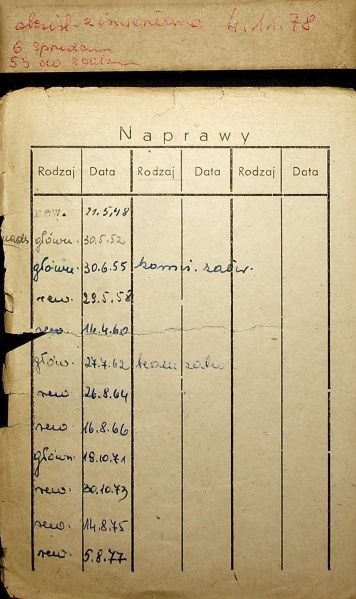 4.11.78
6
53 do
Naprawy
Rodzaj Data Rodzaj Data Rodzaj Data
rew. 21.5.48
główn. 30.5.52
główn. 30.6.55 komis. zatw.
rew. 29.5.58
rew. 14.4.60
główn. 27.7.62
rew. 26.8.64
rew. 16.8.66
główn. 19.10.71
rew. 30.10.73
rew. 14.8.75
rew. 5.8.77